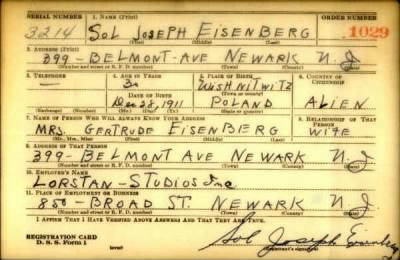 SERIAL NUMBER 1. NAME (Print) ORDER NUMBER
3214 SOL JOSEPH EISENBERG 1029
(First) (Middle) (Last)
2. ADDRESS (Print)
399- BELMONT-AVE NEWARK N.J
(Number and street or R. F. D. number) (Town) (County) (State)
3. TELEPHONE 4. AGE IN YEARS 5. PLACE OF BIRTH 6. COUNTRY OF CITIZENSHIP
30 WISHNITWITZ
DATE OF BIRTH (Town or county)
Dec 28, 1911 POLAND ALIEN
(Exchange) (Number) (Mo.) (Day) (Yr.) (State or country)
7. NAME OF PERSON WHO WILL ALWAYS KNOW YOUR ADDRESS 8. RELATIONSHIP OF THAT PERSON
MRS. GERTRUDE EISENBERG WIFE
(Mr., Mrs., Miss) (First) (Middle) (Last)
9. ADDRESS OF THAT PERSON
399- BELMONT AVE NEWARK N.J
(Number and street or R. F. D. number) (Town) (County) (State)
10. EMPLOYER'S NAME
LORSTAN- STUDIOS Inc
11. PLACE OF EMPLOYMENT OR BUSINESS
850- BROAD ST. NEWARK N.J
(Number and street or R. F. D. number) (Town) (County) (State)
I AFFIRM THAT I HAVE VERIFIED ABOVE ANSWERS AND THAT THEY ARE TRUE.
REGISTRATION CARD
D. S. S. Form 1 (over) Sol Joseph Eisenberg
(Registrant's signature)